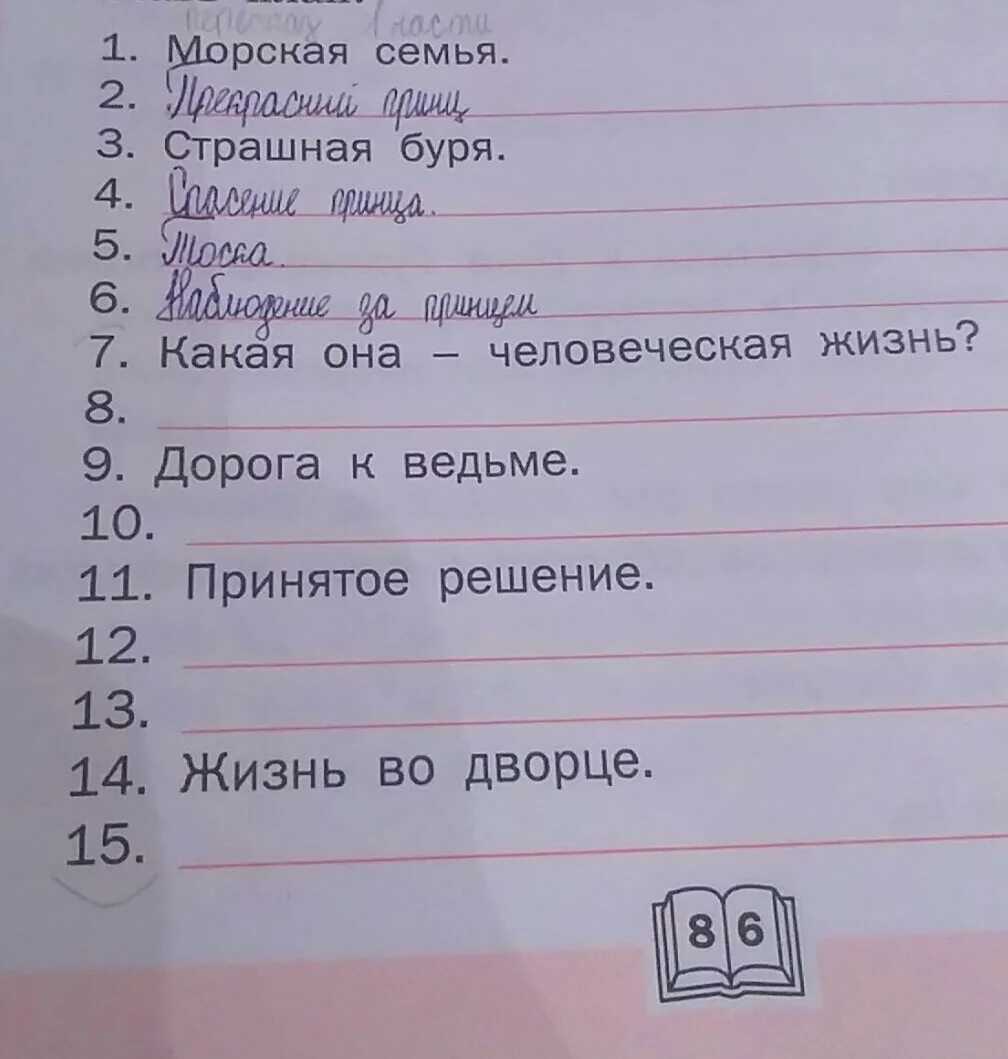 пересказ 1 части
1. Морская семья.
2. Прекрасный принц
3. Страшная буря.
4. Спасение принца.
5. Тоска.
6. Наблюдение за принцем
7. Какая она – человеческая жизнь?
8.
9. Дорога к ведьме.
10.
11. Принятое решение.
12.
13.
14. Жизнь во дворце.
15.
86